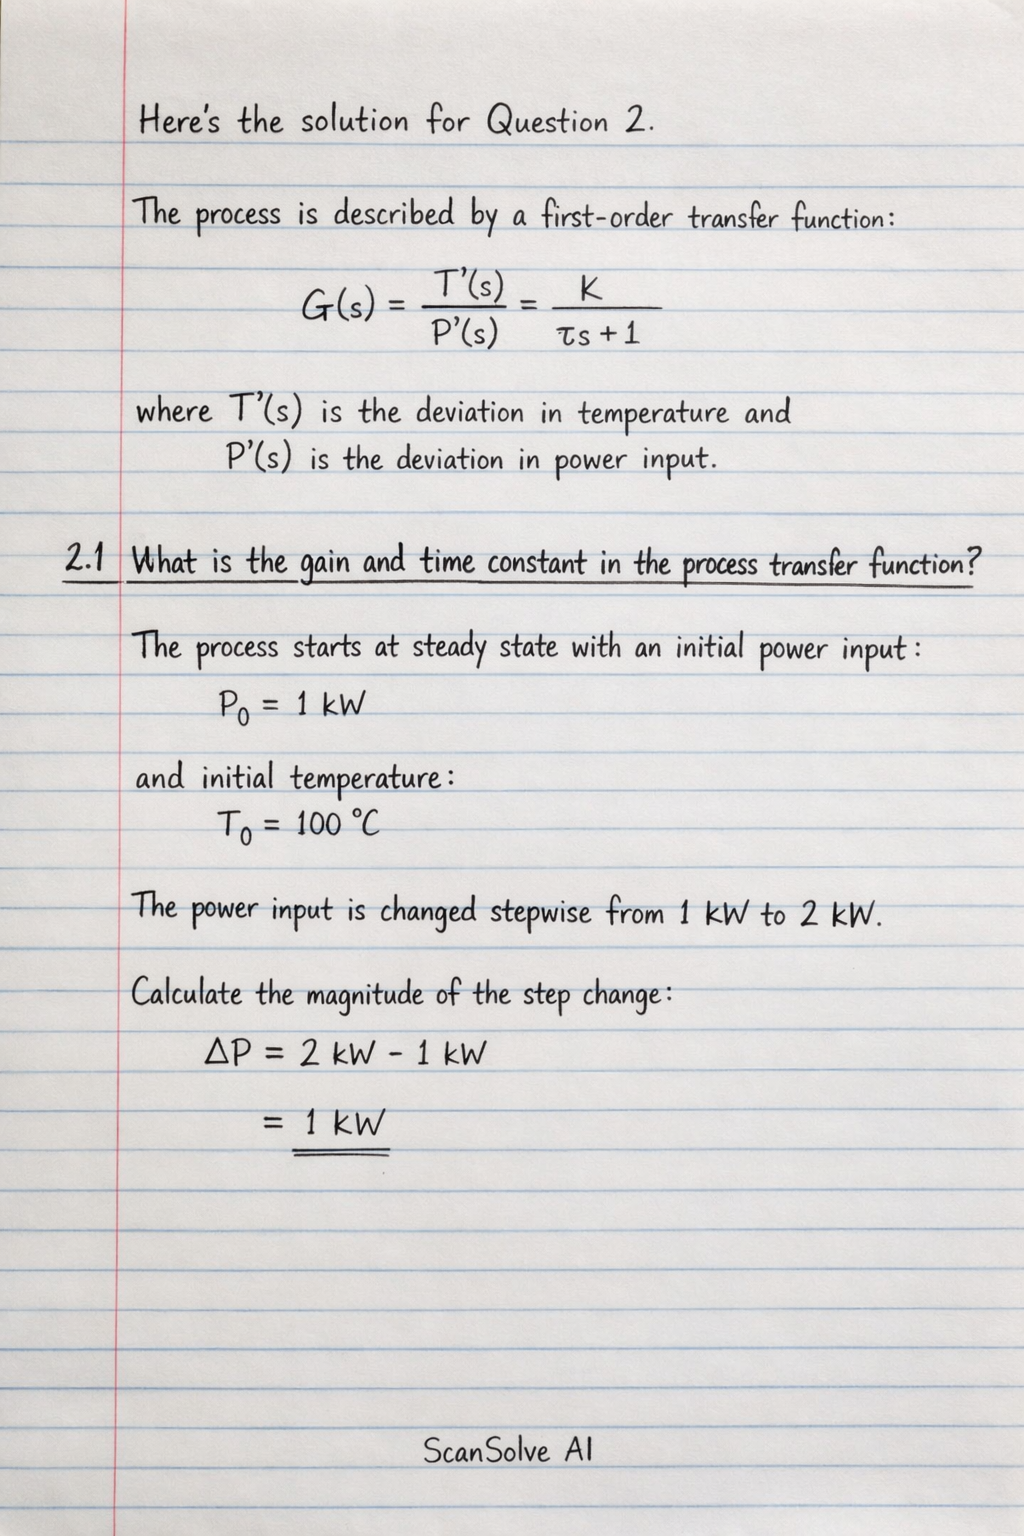 Here's the solution for Question 2.
The process is described by a first-order transfer function:
G(s) = T'(s)/P'(s) = K/(τs + 1)
where T'(s) is the deviation in temperature and
P'(s) is the deviation in power input.
2.1 What is the gain and time constant in the process transfer function?
The process starts at steady state with an initial power input:
P₀ = 1 kW
and initial temperature:
T₀ = 100 °C
The power input is changed stepwise from 1 kW to 2 kW.
Calculate the magnitude of the step change:
ΔP = 2 kW - 1 kW
= 1 kW
ScanSolve AI